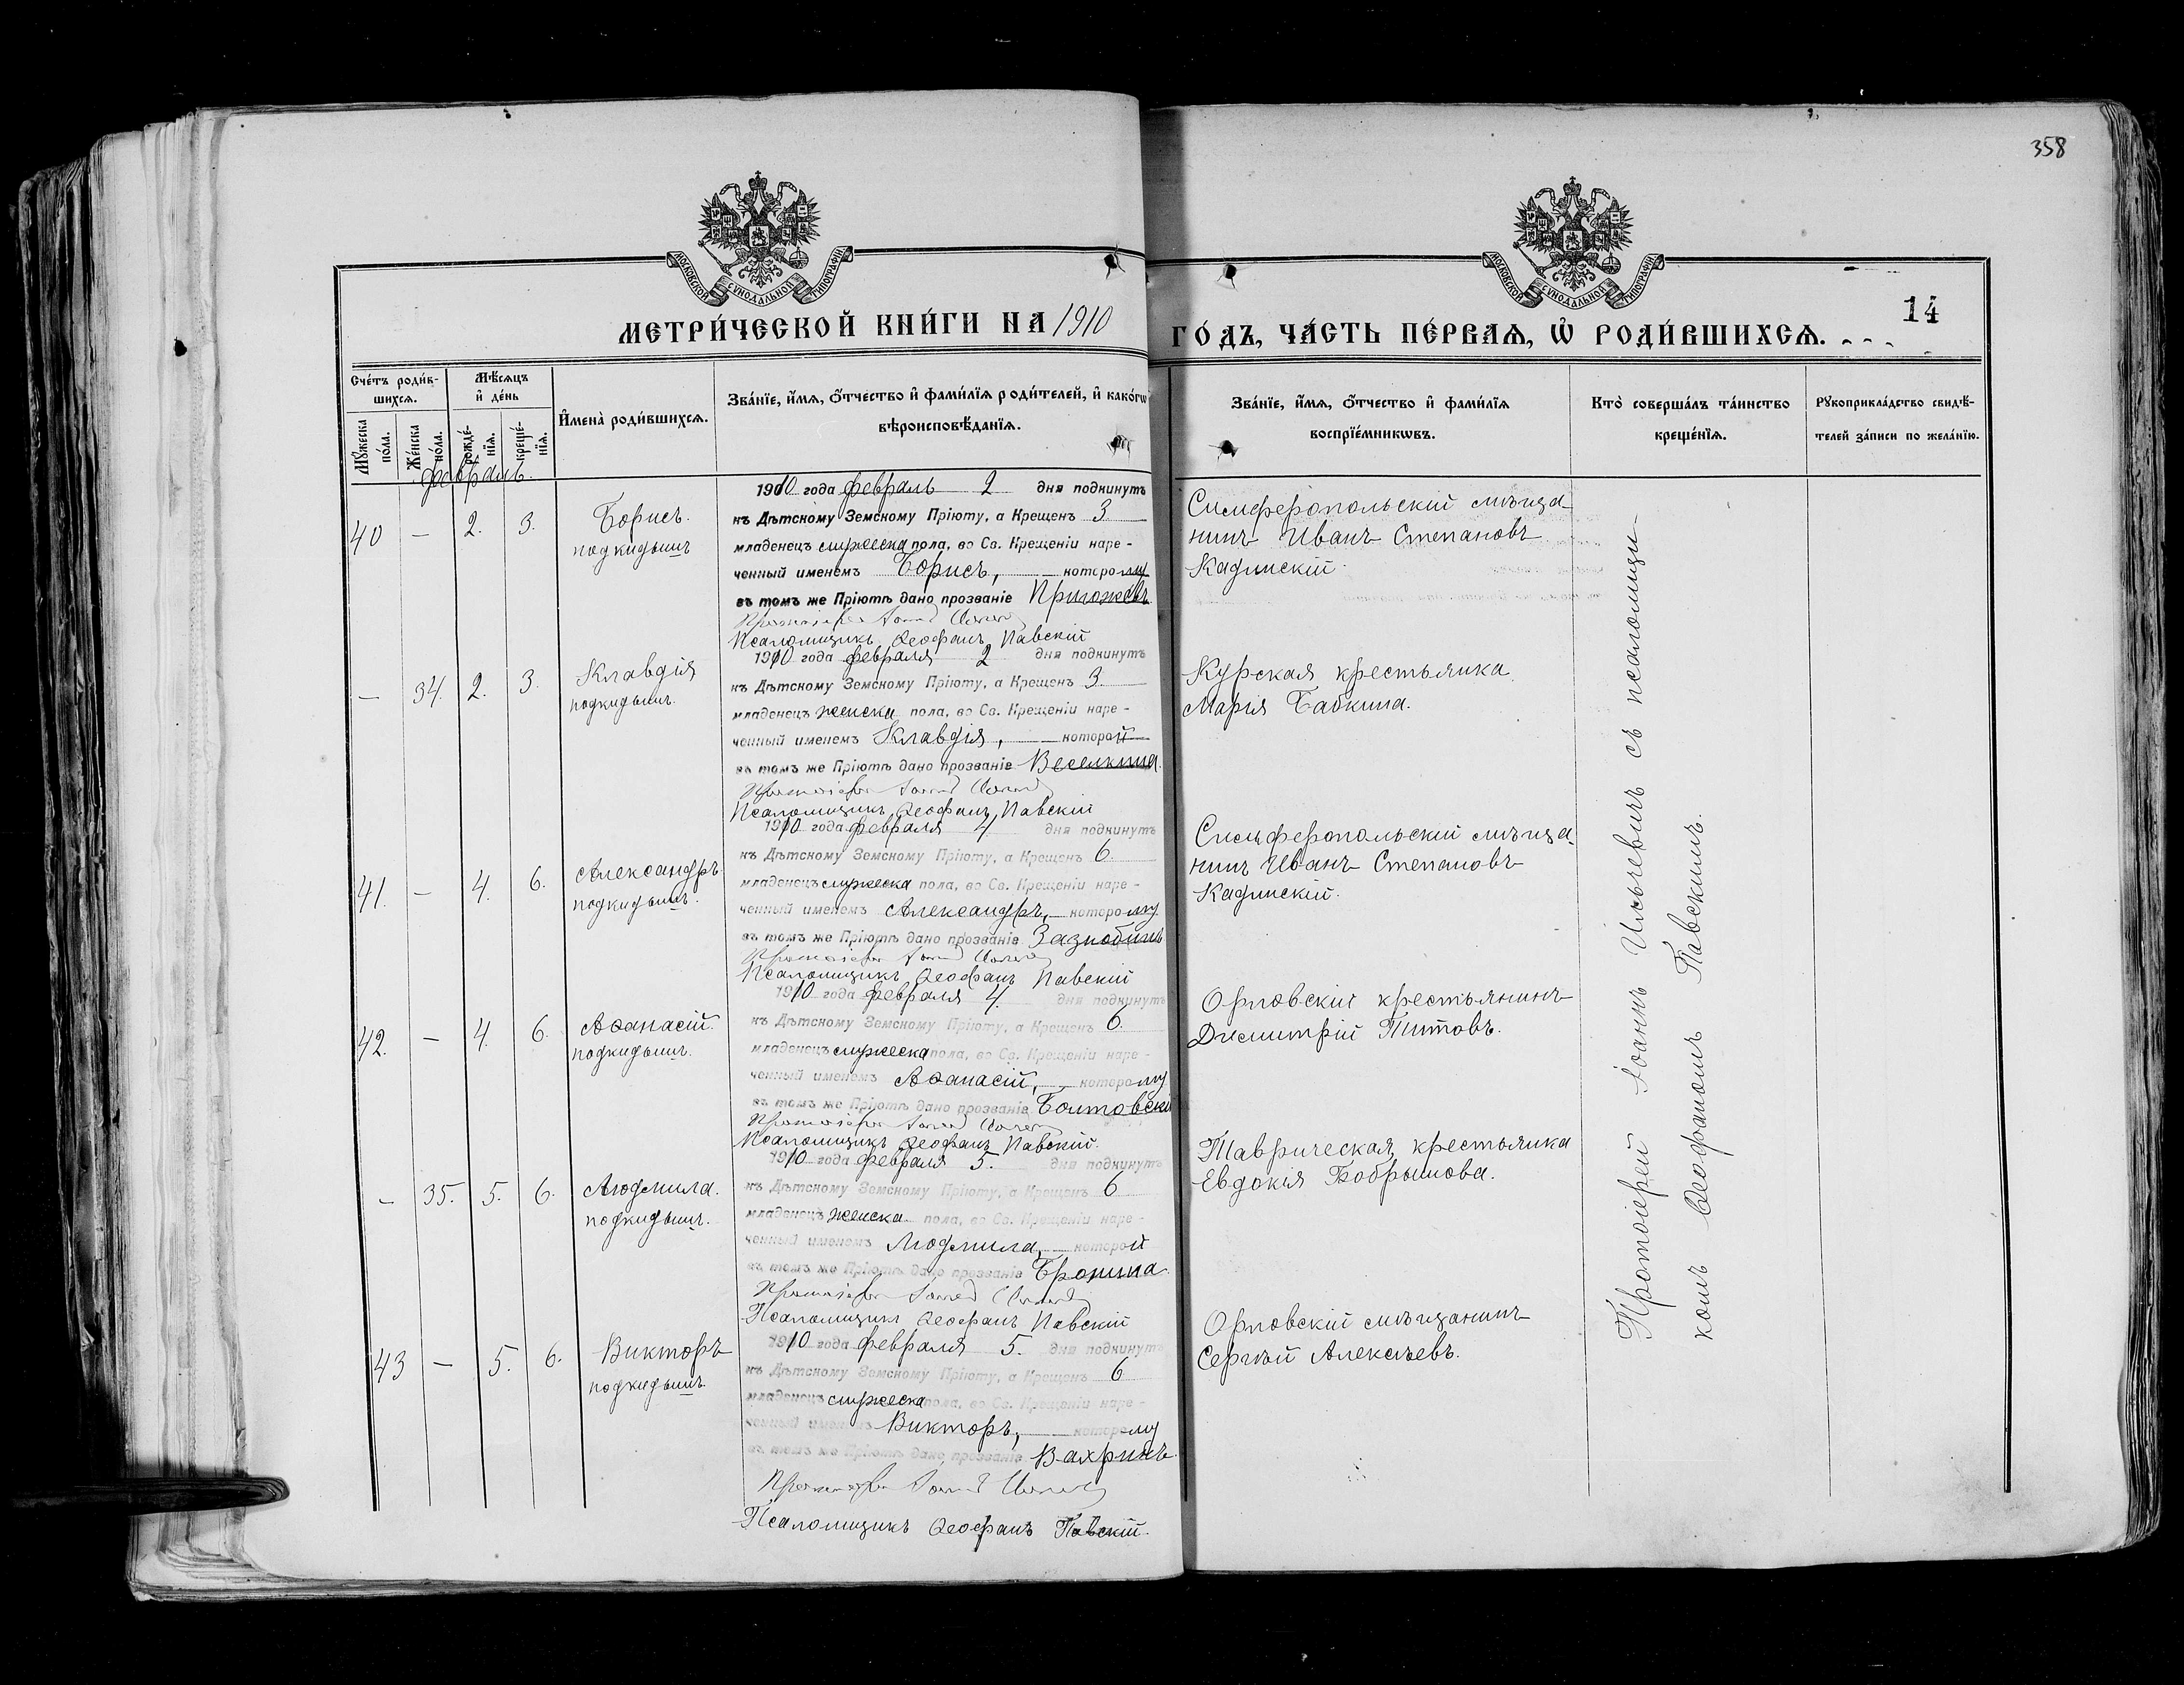 358
МОСКОВСКОЙ СѴНОДАЛЬНОЙ ТИПОГРАФІИ
МОСКОВСКОЙ СѴНОДАЛЬНОЙ ТИПОГРАФІИ
14
МЕТРИ́ЧЕСКОЙ КНИ́ГИ НА 1910
ГО́ДЪ, ЧА́СТЬ ПЕ́РВАѦ, Ѡ҆ РОДИ́ВШИХСѦ.
Сче́тъ роди́в-
шихсѧ.
Мꙋ́жеска по́ла.
Же́нска по́ла.
Мѣ́сѧцъ
и҆ де́нь
рожде́-нїѧ.
креще́-нїѧ.
И҆мена̀ роди́вшихсѧ.
Зва́нїе, и҆́мѧ, ѻ҆́тчество и҆ фами́лїѧ роди́телей, и҆ како́гѡ
вѣроисповѣ́данїѧ.
Зва́нїе, и҆́мѧ, ѻ҆́тчество и҆ фами́лїѧ
воспрїе́мникѡвъ.
Кто̀ соверша́лъ та́инство
креще́нїѧ.
Рꙋкоприкла́дство свидѣ́-
телей за́писи по жела́нїю.
Февраль
40 — 2. 3. Борисъ.
подкидышъ
1910 года февраль 2 дня подкинутъ
къ Дѣтскому Земскому Пріюту, а Крещенъ 3
младенецъ мужеска пола, во Св. Крещеніи наре-
ченный именемъ Борисъ, — которому
въ томъ же Пріютѣ дано прозваніе Пригожевъ
Псаломщикъ Ѳеофанъ Павскій
Симферопольскій мѣща-
нинъ Иванъ Степановъ
Кадинскій
— 34. 2. 3. Клавдія
подкидышъ.
1910 года февраля 2 дня подкинутъ
къ Дѣтскому Земскому Пріюту, а Крещенъ 3.
младенецъ женска пола, во Св. Крещеніи наре-
ченный именемъ Клавдія, — которой
въ томъ же Пріютѣ дано прозваніе Веселкина.
Псаломщикъ Ѳеофанъ Павскій
Курская крестьянка
Марія Бабкина.
41. — 4. 6. Александръ
подкидышъ.
1910 года февраля 4 дня подкинутъ
къ Дѣтскому Земскому Пріюту, а Крещенъ 6.
младенецъ мужеска пола, во Св. Крещеніи наре-
ченный именемъ Александръ, — которому
въ томъ же Пріютѣ дано прозваніе Зазнобинъ
Псаломщикъ Ѳеофанъ Павскій
Симферопольскій мѣща-
нинъ Иванъ Степановъ
Кадинскій.
42. — 4. 6. Аѳанасій.
подкидышъ.
1910 года февраля 4. дня подкинутъ
къ Дѣтскому Земскому Пріюту, а Крещенъ 6.
младенецъ мужеска пола, во Св. Крещеніи наре-
ченный именемъ Аѳанасій, — которому
въ томъ же Пріютѣ дано прозваніе Болтовскій
Псаломщикъ Ѳеофанъ Павскій.
Орловскій крестьянинъ
Димитрій Титовъ.
— 35. 5. 6. Людмила.
подкидышъ.
1910 года февраля 5. дня подкинутъ
къ Дѣтскому Земскому Пріюту, а Крещенъ 6
младенецъ женска пола, во Св. Крещеніи наре-
ченный именемъ Людмила, — которой
въ томъ же Пріютѣ дано прозваніе Бронина.
Псаломщикъ Ѳеофанъ Павскій
Таврическая крестьянка
Евдокія Бобрышова.
43 — 5. 6. Викторъ
подкидышъ.
1910 года февраля 5. дня подкинутъ
къ Дѣтскому Земскому Пріюту, а Крещенъ 6
младенецъ мужеска пола, во Св. Крещеніи наре-
ченный именемъ Викторъ, — которому
въ томъ же Пріютѣ дано прозваніе Вахринъ.
Псаломщикъ Ѳеофанъ Павскій.
Орловскій мѣщанинъ
Сергѣй Алексѣевъ.
Протоіерей Іоаннъ Ильчевичъ съ псаломщи-
комъ Ѳеофаномъ Павскимъ.